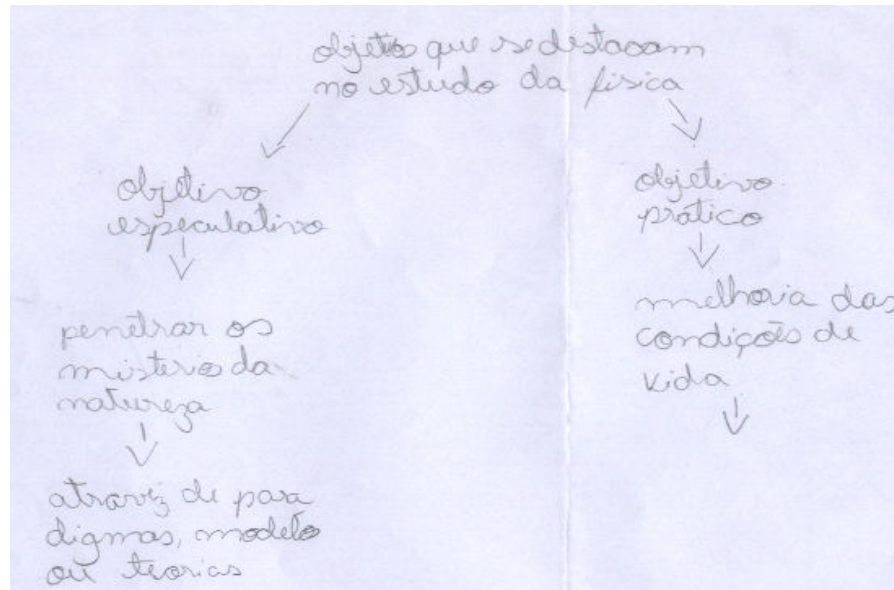 objetos que se destacam
no estudo da física
objetivo
especulativo
penetrar os
misterios da
natureza
atravéz de para
digmas, modelo
ou teorias
objetivo
prático
melhoria das
condições de
vida